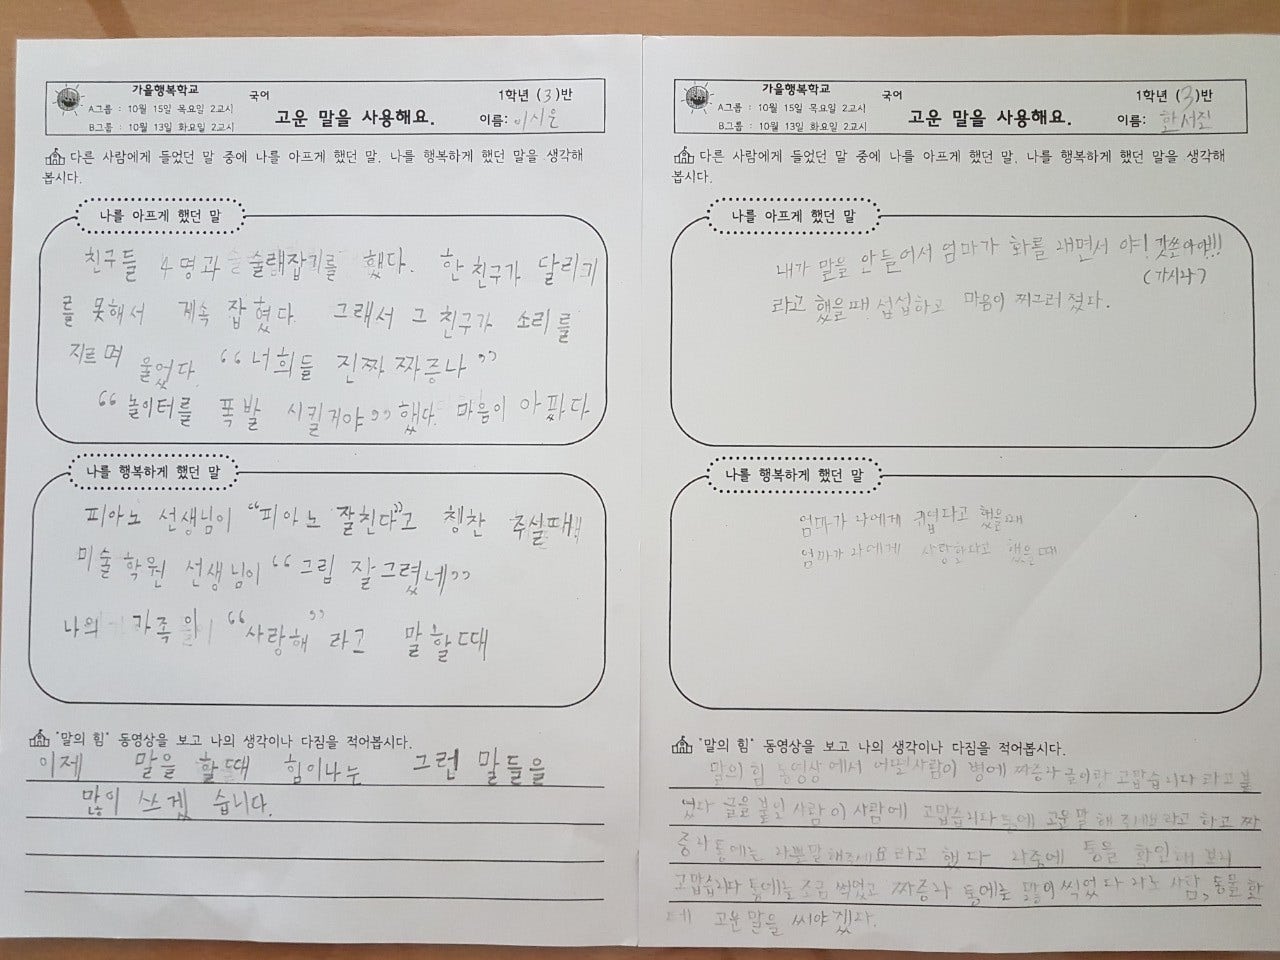 가을행복학교
국어
1학년 (3)반
A그룹 : 10월 15일 목요일 2교시
B그룹 : 10월 13일 화요일 2교시
고운 말을 사용해요.
이름: 이시은
다른 사람에게 들었던 말 중에 나를 아프게 했던 말, 나를 행복하게 했던 말을 생각해
봅시다.
나를 아프게 했던 말
친구들 4명과 술래잡기를 했다. 한 친구가 달리기
를 못해서 계속 잡혔다. 그래서 그 친구가 소리를
지르며 울었다. “너희들 진짜 짜증나”
“놀이터를 폭발 시킬거야” 했다. 마음이 아팠다
나를 행복하게 했던 말
피아노 선생님이 “피아노 잘친다”고 칭찬 주실때!!
미술 학원 선생님이 “그림 잘그렸네”
나의 가족의 “사랑해” 라고 말할때
"말의 힘" 동영상을 보고 나의 생각이나 다짐을 적어봅시다.
이제 말을 할때 힘이나는 그런 말들을
많이 쓰겠 습니다.
가을행복학교
국어
1학년 (3)반
A그룹 : 10월 15일 목요일 2교시
B그룹 : 10월 13일 화요일 2교시
고운 말을 사용해요.
이름: 한서진
다른 사람에게 들었던 말 중에 나를 아프게 했던 말, 나를 행복하게 했던 말을 생각해
봅시다.
나를 아프게 했던 말
내가 말을 안들어서 엄마가 화를 내면서 야!
(가시나)
라고 했을때 섭섭하고 마음이 찌그러졌다.
나를 행복하게 했던 말
엄마가 나에게 귀엽다고 했을때
엄마가 나에게 사랑한다고 했을때
"말의 힘" 동영상을 보고 나의 생각이나 다짐을 적어봅시다.
말의 힘 동영상에서 어떤 사람이 병에 짜증나 글이랑 고맙습니다 라고 붙
였다 글을 붙인 사람이 사람에 고맙습니다 통에 고운말 해 주세요 라고 하고 짜
증나 통에는 나쁜말 해주세요 라고 했다 나중에 통을 확인해 보니
고맙습니다 통에는 조금 썩었고 짜증나 통에는 많이 썩었다 나도 사람, 동물 한
테 고운말을 써야겠다.